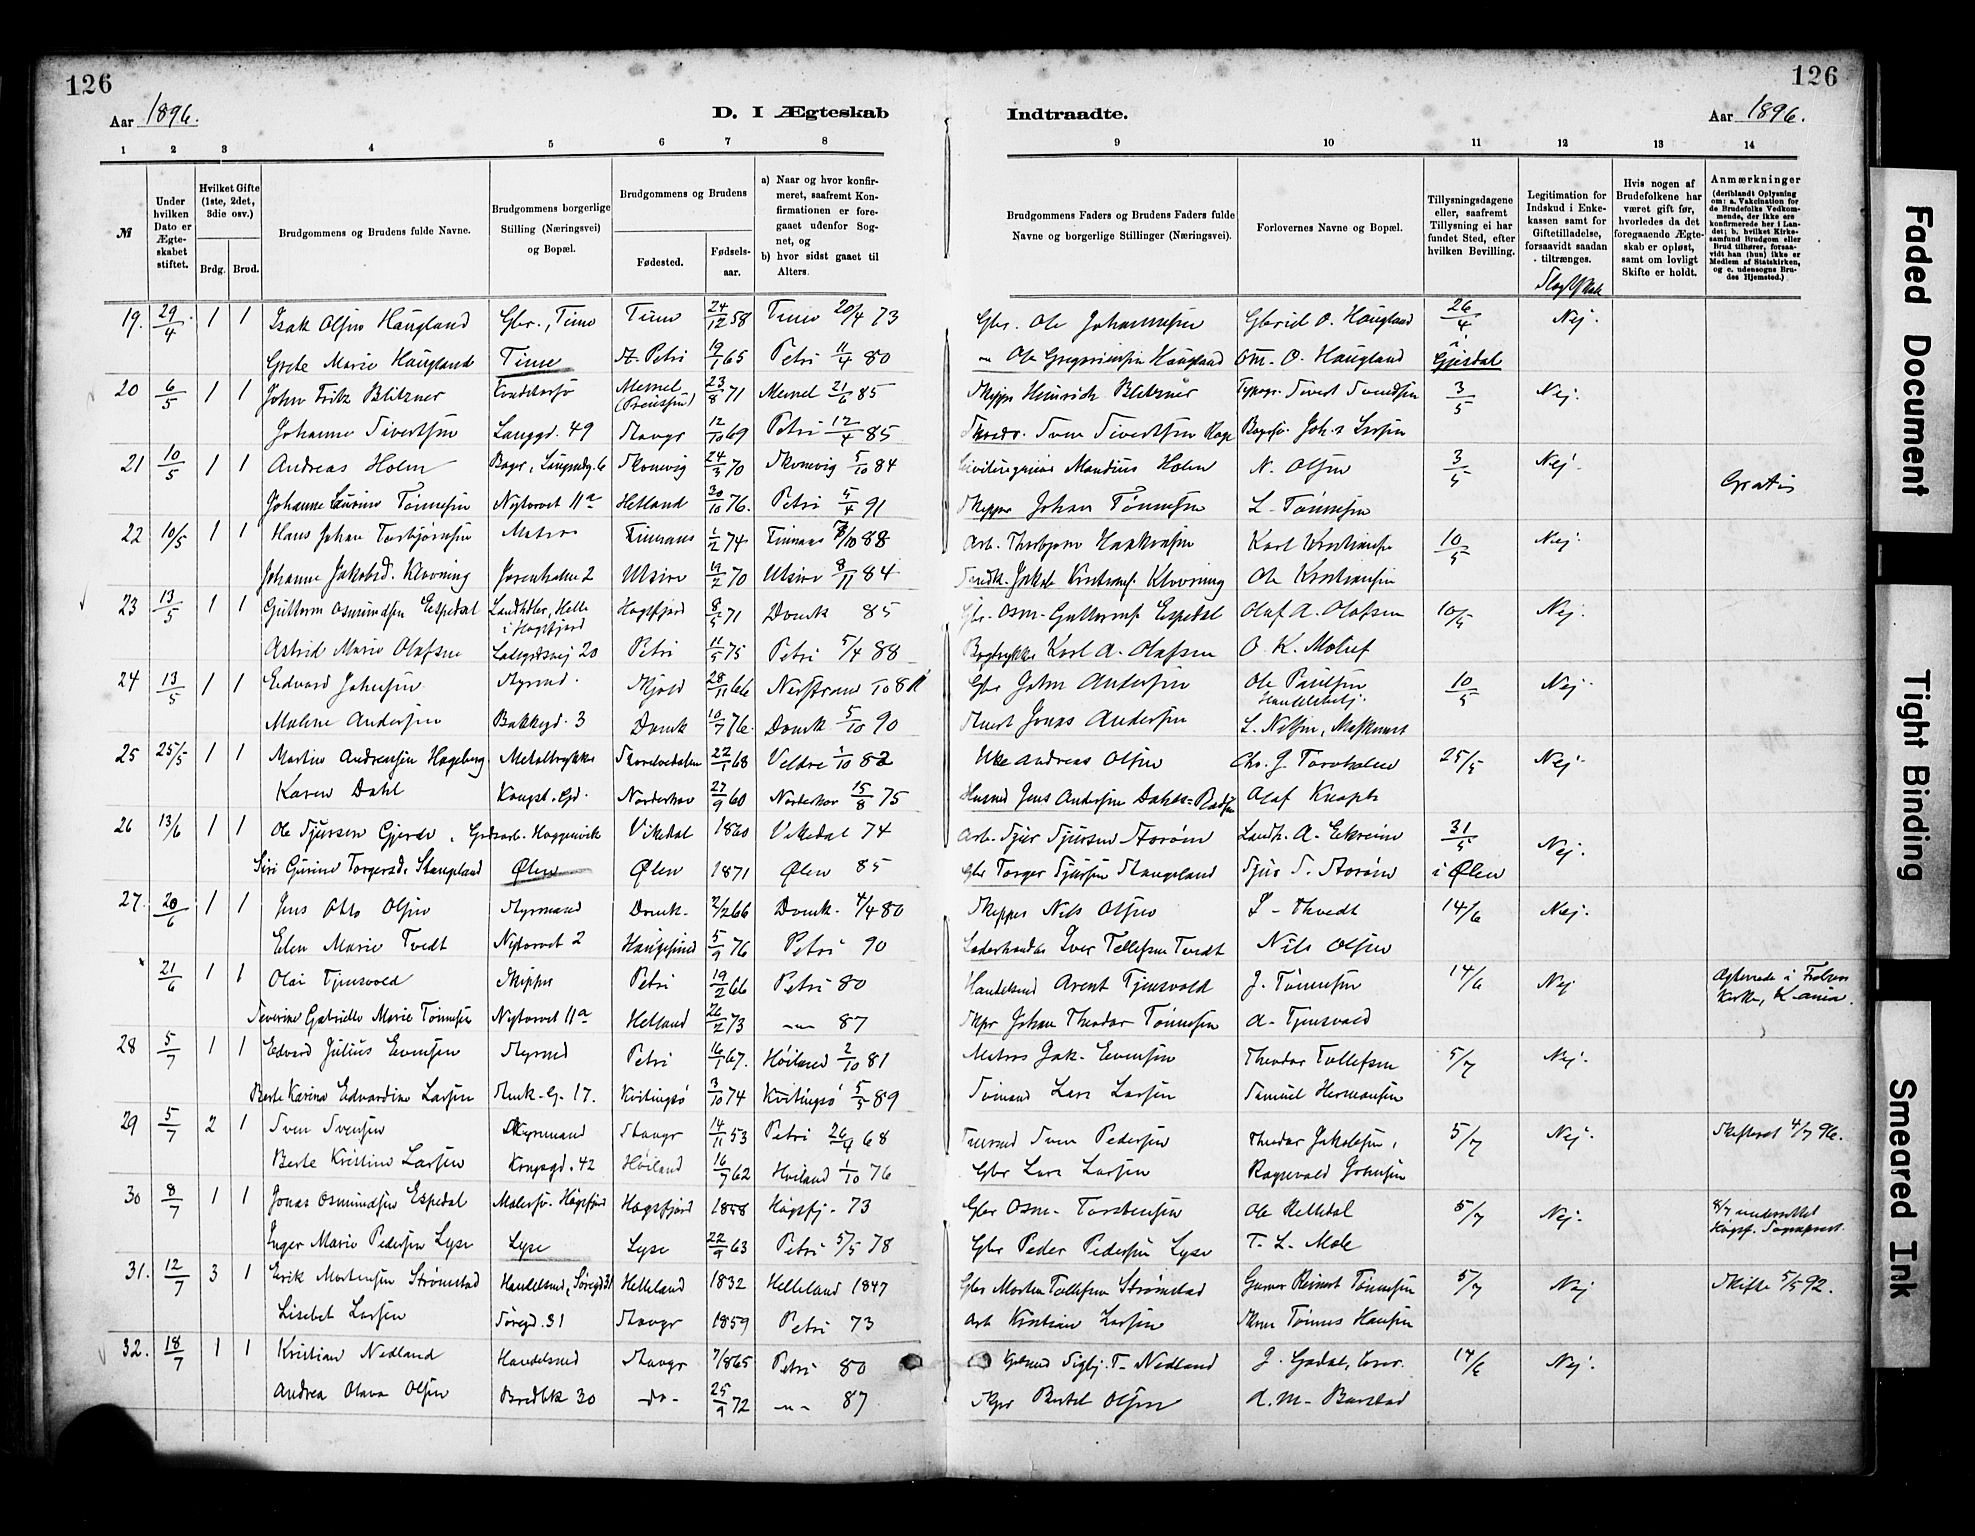 126
126
Aar 1896.
D. I Ægteskab
Indtraadte.
Aar 1896.
1 2 3 4 5 6 7 8 9 10 11 12 13 14
№
Under hvilken Dato er Ægteskabet stiftet.
Hvilket Gifte (1ste, 2det, 3die osv.)
Brdg. Brud.
Brudgommens og Brudens fulde Navne.
Brudgommens borgerlige Stilling (Næringsvei) og Bopæl.
Brudgommens og Brudens
Fødested.
Fødselsaar.
a) Naar og hvor konfirmeret, saafremt Konfirmationen er foregaaet udenfor Sognet, og
b) hvor sidst gaaet til Alters.
Brudgommens Faders og Brudens Faders fulde Navne og borgerlige Stillinger (Næringsvei).
Forlovernes Navne og Bopæl.
Tillysningsdagene eller, saafremt Tillysning ei har fundet Sted, efter hvilken Bevilling.
Legitimation for Indskud i Enkekassen samt for Giftetilladelse, forsaavidt saadan tiltrænges.
Hvis nogen af Brudefolkene har været gift før, hvorledes da det foregaaende Ægteskab er opløst, samt om lovligt Skifte er holdt.
Anmærkninger
(deriblandt Oplysning om: a. Vakcination for de Brudefolks Vedkommende, der ikke ere konfirmerede her i Landet; b. hvilket Kirkesamfund Brudgom eller Brud tilhører, forsaavidt han (hun) ikke er Medlem af Statskirken, og c. udensogns Brudes Hjemsted.)
19. 29/4 1 1 Isak Olsen Haugland Gbr., Time Time 24/12 58 Time 20/4 73 Gbr. Ole Johannesen Gabriel O. Haugland 26/4 Nej.
Grete Marie Haugland Time St. Petri 19/1 65 Petri 11/4 80 Ole Gregoriussen Haugland Om. O. Haugland i Gjesdal
20 6/5 1 1 John Fritz Blitzner Memel 23/8 71 Memel 21/6 85 Skipper Heinrich Blitzner Typogr. Sivert Svendsen 3/5 Nej.
Johanne Sivertsen Langgd. 49 Stavgr 12/10 69 Petri 12/4 85 Sven Sivertsen Johs Larsen
21 10/5 1 1 Andreas Holm Bager, 6 Skonevig 24/3 70 Skonevig 5/10 84 Mandius Holm N. Olsen 3/5 Nej. Gratis
Johanne Laurine Tønnesen Nytorvet 11a Hetland 30/10 76. Petri 5/4 91 Skipper Johan Tønnesen L. Tønnesen
22 10/5 1 1 Hans Johan Torbjørnsen Matros Finnaas 1/2 74 Finnaas 88 Arb. Thorbjørn Haakonsen Karl Kristiansen 10/5 Nej.
Johanne Jakobsd. Klovning Jorenholm 2 Utsire 19/2 70 Utsire 8/11 84 Jakob Kristians. Klovning Ole Kristiansen
23 13/5 1 1 Guttorm Osmundsen Espedal Landhdler, Helle i Høgsfjord Høgsfjord 8/5 71 Domk 85 Gbr. Osm. Guttorms. Espedal Olaf A. Olafsen 10/5 Nej.
Astrid Marie Olafsen 20 Petri 11/5 75 Petri 5/4 88 Bogtrykker Karl A. Olafsen O. K. Molief
24 13/5 1 1 Edvard Johnsen Styrmd. Skjold 28/11 66 Nerstrand Gbr John Andersen Ole Paulsen Handelsbetj. 10/5 Nej.
Malene Andersen Bakkegd. 3 Domk 10/7 76. Domk 5/10 90 Jonas Andersen L. Nilsen,
25 25/5 1 1 Martin Andreassen Hageberg Metaltrykker 22/1 68 Veldre 1/10 82 Andreas Olsen Chr. J. Torvholm 25/5 Nej.
Karen Dahl Kongsd. Gd. Norderhov 27/9 60 Norderhov 15/8 75 Husmd Jens Andersen Olaf Knaph
26 13/6 1 1 Ole Sjursen Gjerde, Vikedal 1860 Vikedal 74 Arb. Sjur Sjursen Storøen Landh. A. Eikreim 31/5 Nej.
Siri Gurine Torgersd. Stangeland Ølen Ølen 1871 Ølen 85 Gbr Torger Sjursen Stangeland Sjur S. Storøen i Ølen
27. 20/6 1 1 Jens Otto Olsen Styrmand Domk. 2/2 66 Domk. 4/4 80 Skipper Nils Olsen I. Thvedt 14/6 Nej.
Elen Marie Tvedt Nytorvet 2 Haugesund 5/9 76 Petri 90 Læderhandler Iver Tollefsen Tvedt Nils Olsen
21/6 1 1 Olai Tjensvold Skipper Petri 19/2 66 Petri 80 Handelsmd Arent Tjensvold J. Tønnesen 14/6 Nej Kirke, K-ania.
Severine Gabrielle Marie Tønnesen Nytorvet 11a Hetland 26/2 73 -"- 87 Skpr Johan Theodor Tønnesen A. Tjensvold
28 5/7 1 1 Edvard Julius Evensen Styrmd Petri 16/1 67. Høiland 2/10 81 Matros Jak. Evensen Theodor Tollefsen 5/7 Nej.
Berte Karina Edvardine Larsen 17. Kvitingsø 3/10 74 Kvitingsø 5/5 89 Sømand Lars Larsen Samuel Hermansen
29 5/7 2 1 Sven Svensen Styrmand Stavgr 14/11 53 Petri 26/4 68 Sven Pedersen Theodor Jakobsen, 5/7 Nej. Skifteret 4/7 96.
Berte Kristine Larsen Kongsgd. 42 Høiland 16/7 62 Høiland 1/10 76 Gbr Lars Larsen Ragnvald Johnsen
30 8/7 1 1 Jonas Osmundsen Espedal Malersv. Høgsfjord Høgsfjord 1858 Høgsfj. 73 Gbr Osm. Torstensen Ole Relledal 5/7 Nej. 8/7 underrettet Høgsf. Sogneprest.
Inger Marie Pedersen Lyse Lyse Lyse 22/9 63 Petri 5/5 78 Gbr Peder Pedersen Lyse T. L. Mele
31. 12/7 3 1 Erik Mortensen Strømstad Handelsmd, Søregd 31 Helleland 1832 Helleland 1847 Gbr Morten Tollefsen Strømstad Reinert Tønnesen 5/7 Nej Skifte 5/5 92.
Lisebet Larsen Søregd. 31 Stavgr 1859 Petri 73 Arb Kristian Larsen Tønnes Hansen
32. 18/7 1 1 Kristian Nedland Handelsmd Stavgr 7/8 65 Petri 80 Sigbj. T. Nedland J. Gadal, 14/6 Nej.
Andrea Olava Olsen Bredbk 30 -do- 25/9 72 -"- 87 Skpr Bertel Olsen A. M. Barstad
Faded Document
Tight Binding
Smeared Ink